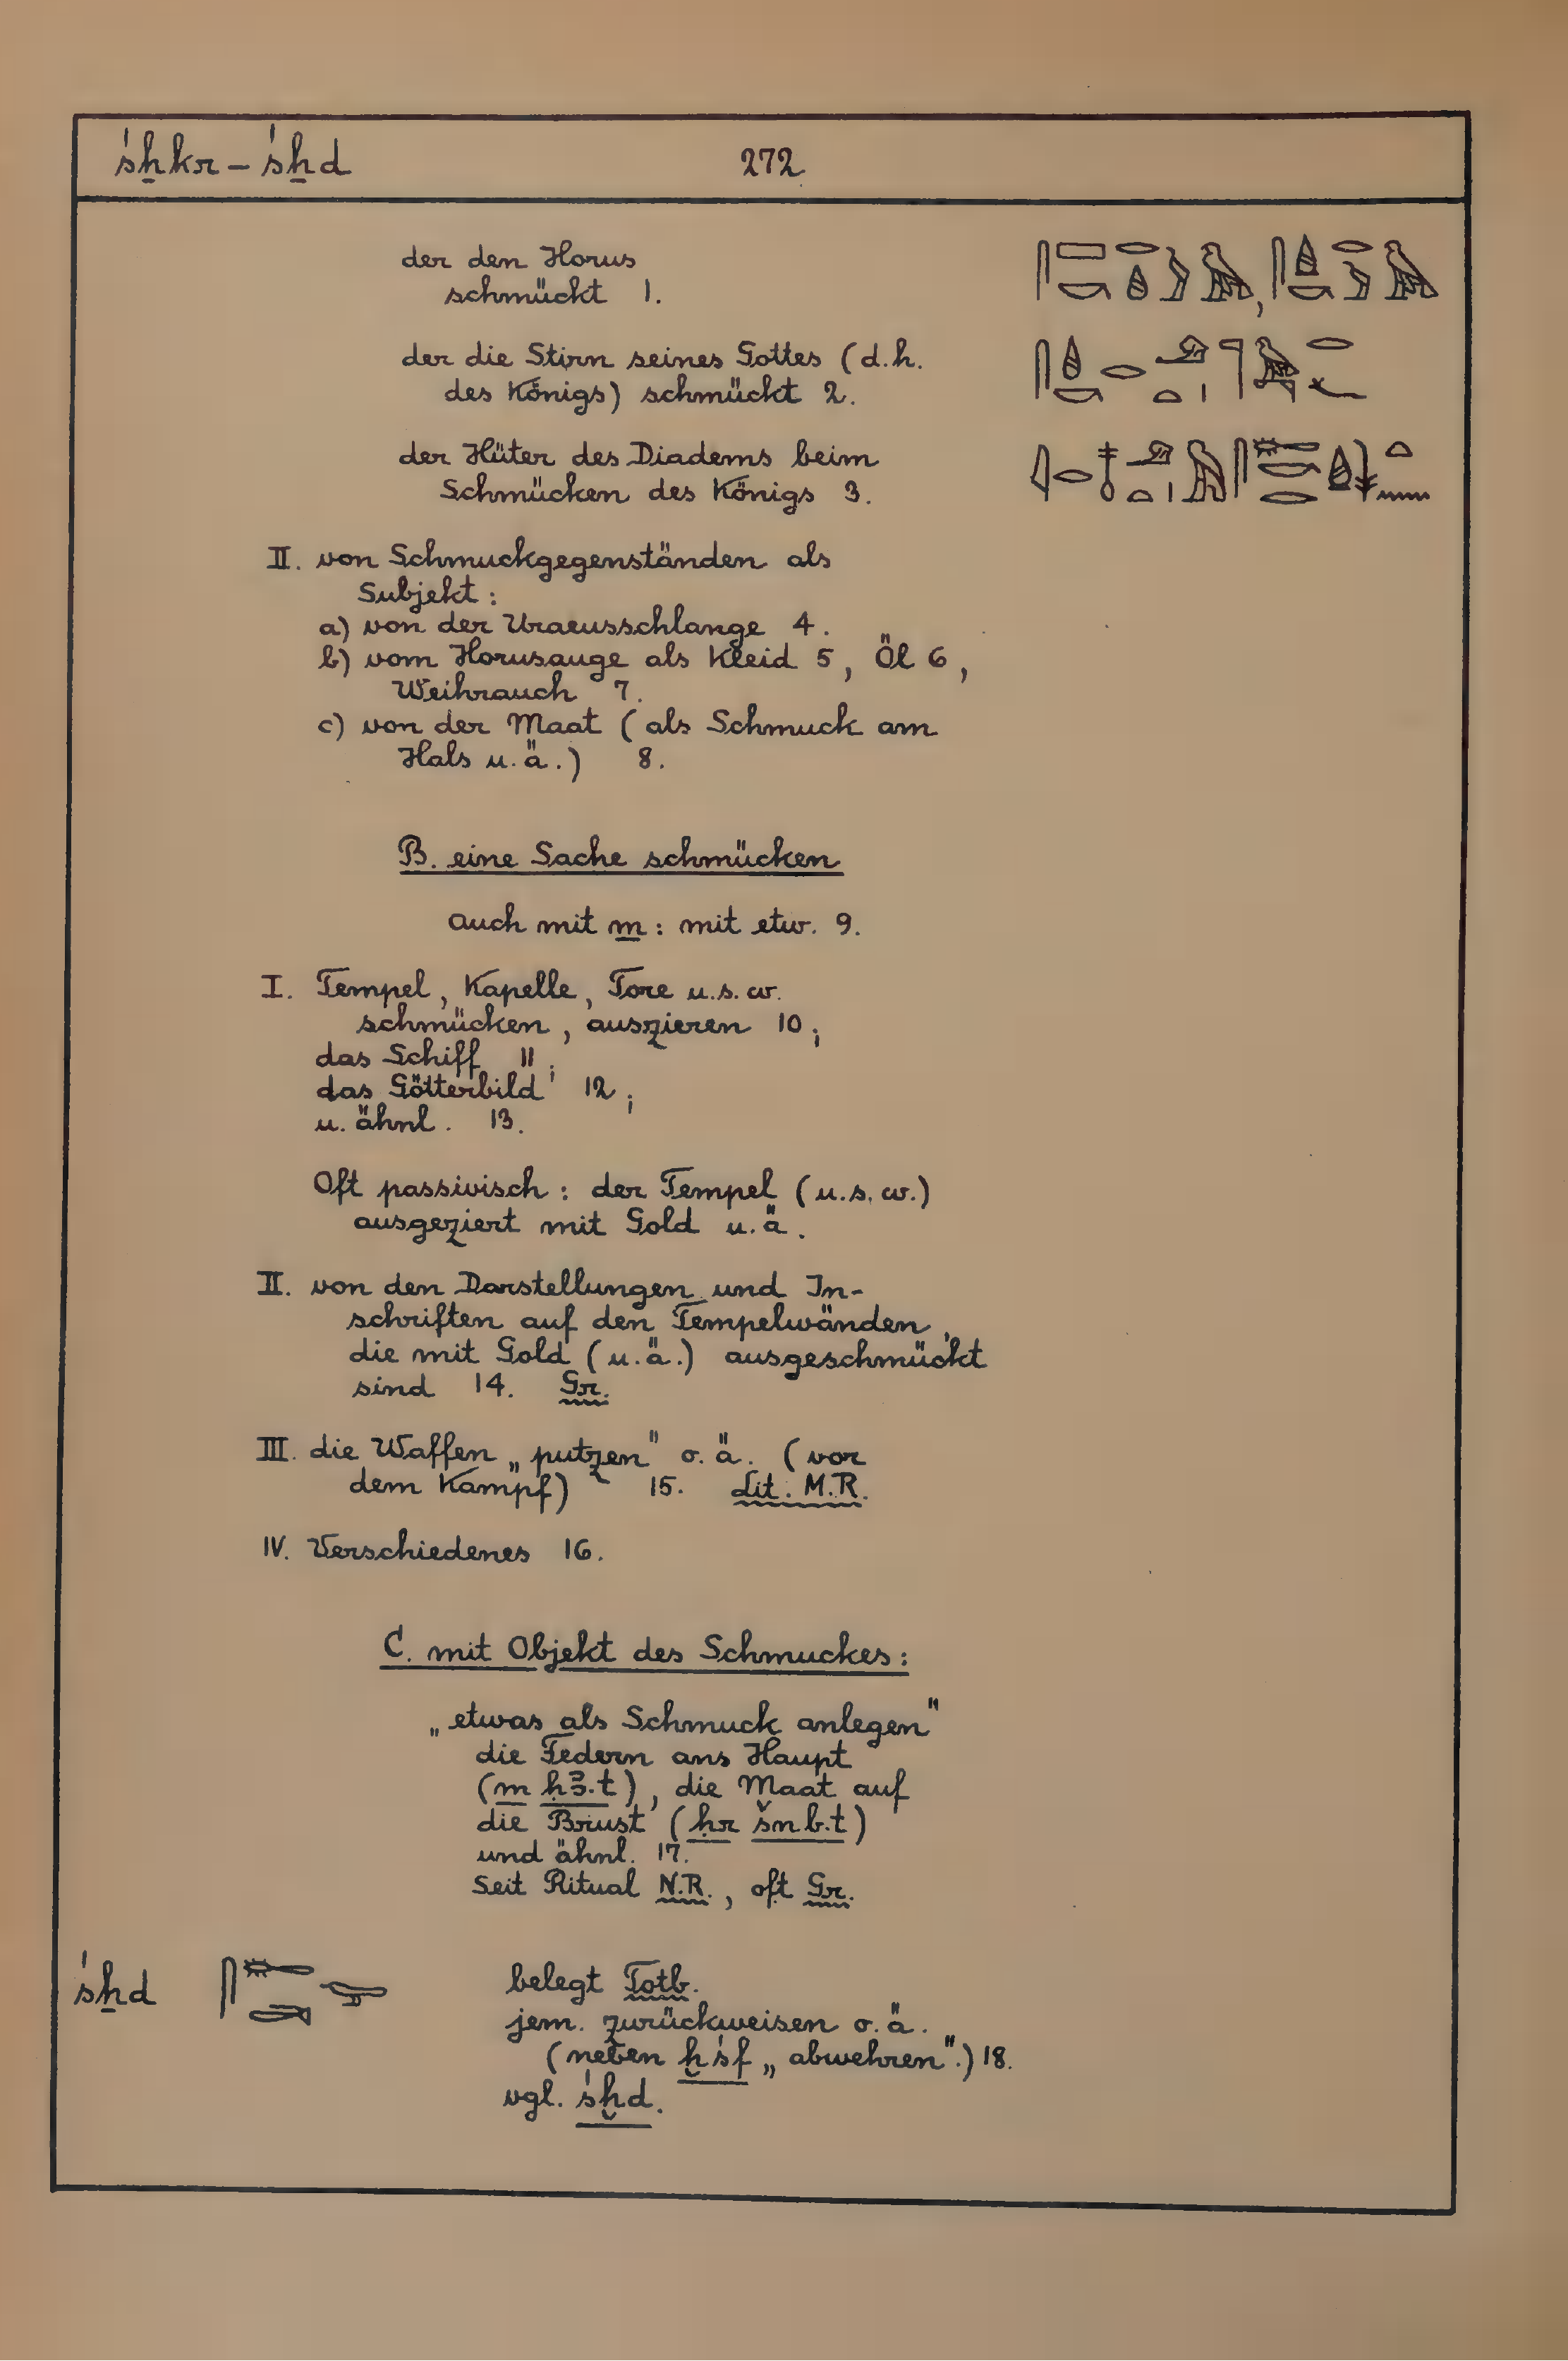 śẖkr – śẖd 272
der den Horus
schmückt 1.
der die Stirn seines Gottes (d.h.
des Königs) schmückt 2.
der Hüter des Diadems beim
Schmücken des Königs 3.
II. von Schmuckgegenständen als
Subjekt:
a) von der Uraeusschlange 4.
b) vom Horusauge als Kleid 5, Öl 6,
Weihrauch 7.
c) von der Maat (als Schmuck am
Hals u.ä.) 8.
B. eine Sache schmücken
auch mit m: mit etw. 9.
I. Tempel, Kapelle, Tore u.s.w.
schmücken, auszieren 10;
das Schiff 11;
das Götterbild 12;
u. ähnl. 13.
Oft passivisch: der Tempel (u.s.w.)
ausgeziert mit Gold u.ä.
II. von den Darstellungen und In-
schriften auf den Tempelwänden,
die mit Gold (u.ä.) ausgeschmückt
sind 14. Gr.
III. die Waffen „putzen" o.ä. (vor
dem Kampf) 15. Lit. M.R.
IV. Verschiedenes 16.
C. mit Objekt des Schmuckes:
„etwas als Schmuck anlegen"
die Federn ans Haupt
(m ḥꜣ.t), die Maat auf
die Brust (ḥr šnb.t)
und ähnl. 17.
Seit Ritual N.R., oft Gr.
śẖd belegt Totb.
jem. zurückweisen o.ä.
(neben ḫśf „abwehren".) 18.
vgl. śḫd.